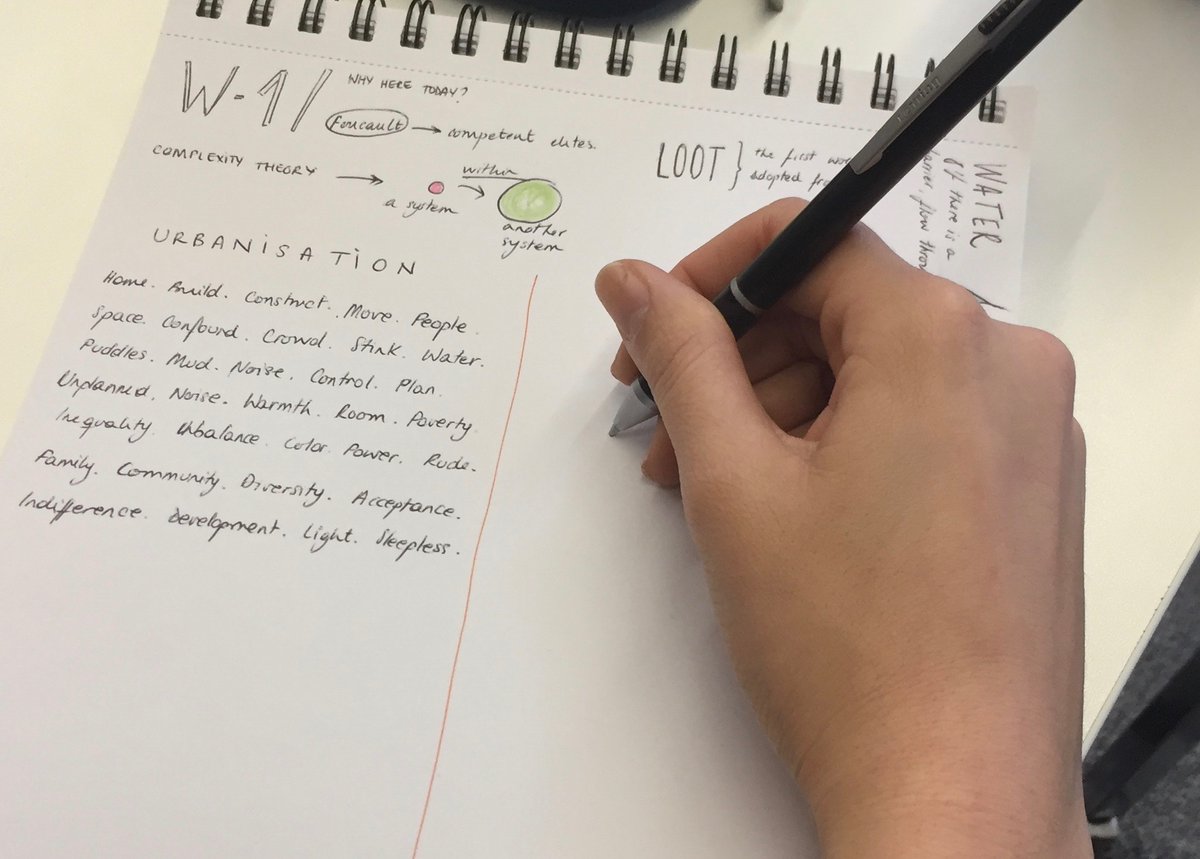 W-1/
WHY HERE TODAY?
Foucault → competent elites.
COMPLEXITY THEORY →
a system
within
another
system
URBANISATION
Home. Build. Construct. Move. People.
Space. Confound. Crowd. Stink. Water.
Puddles. Mud. Noise. Control. Plan.
Unplanned. Noise. Warmth. Room. Poverty
Inequality. Unbalance. Color. Power. Rude.
Family. Community. Diversity. Acceptance.
Indifference. Development. Light. Sleepless.
LOOT } the first
adopted
WATER
there is a
flow